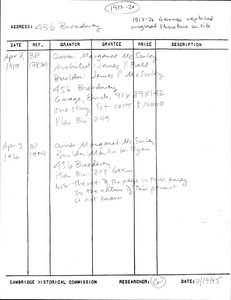 1917-20
ADDRESS: 456 Broadway
1917-20 Garage replaced
original structure on site
DATE REF. GRANTOR GRANTEE PRICE DESCRIPTION
Apr 7, BP Owner Margaret McSorley
Architect James P
Builder James P McSorley
456 Broadway
Garage, Brick,
one story Est cost $10000
Plan Bin 249
Apr 9 BP Owner Margaret McSorley
1920 Builder Martin
456 Broadway
Plan Bin 273
Note: The rest of the page is torn away
so the nature of this permit
is not known
CAMBRIDGE HISTORICAL COMMISSION RESEARCHER: DATE: 7/19/95